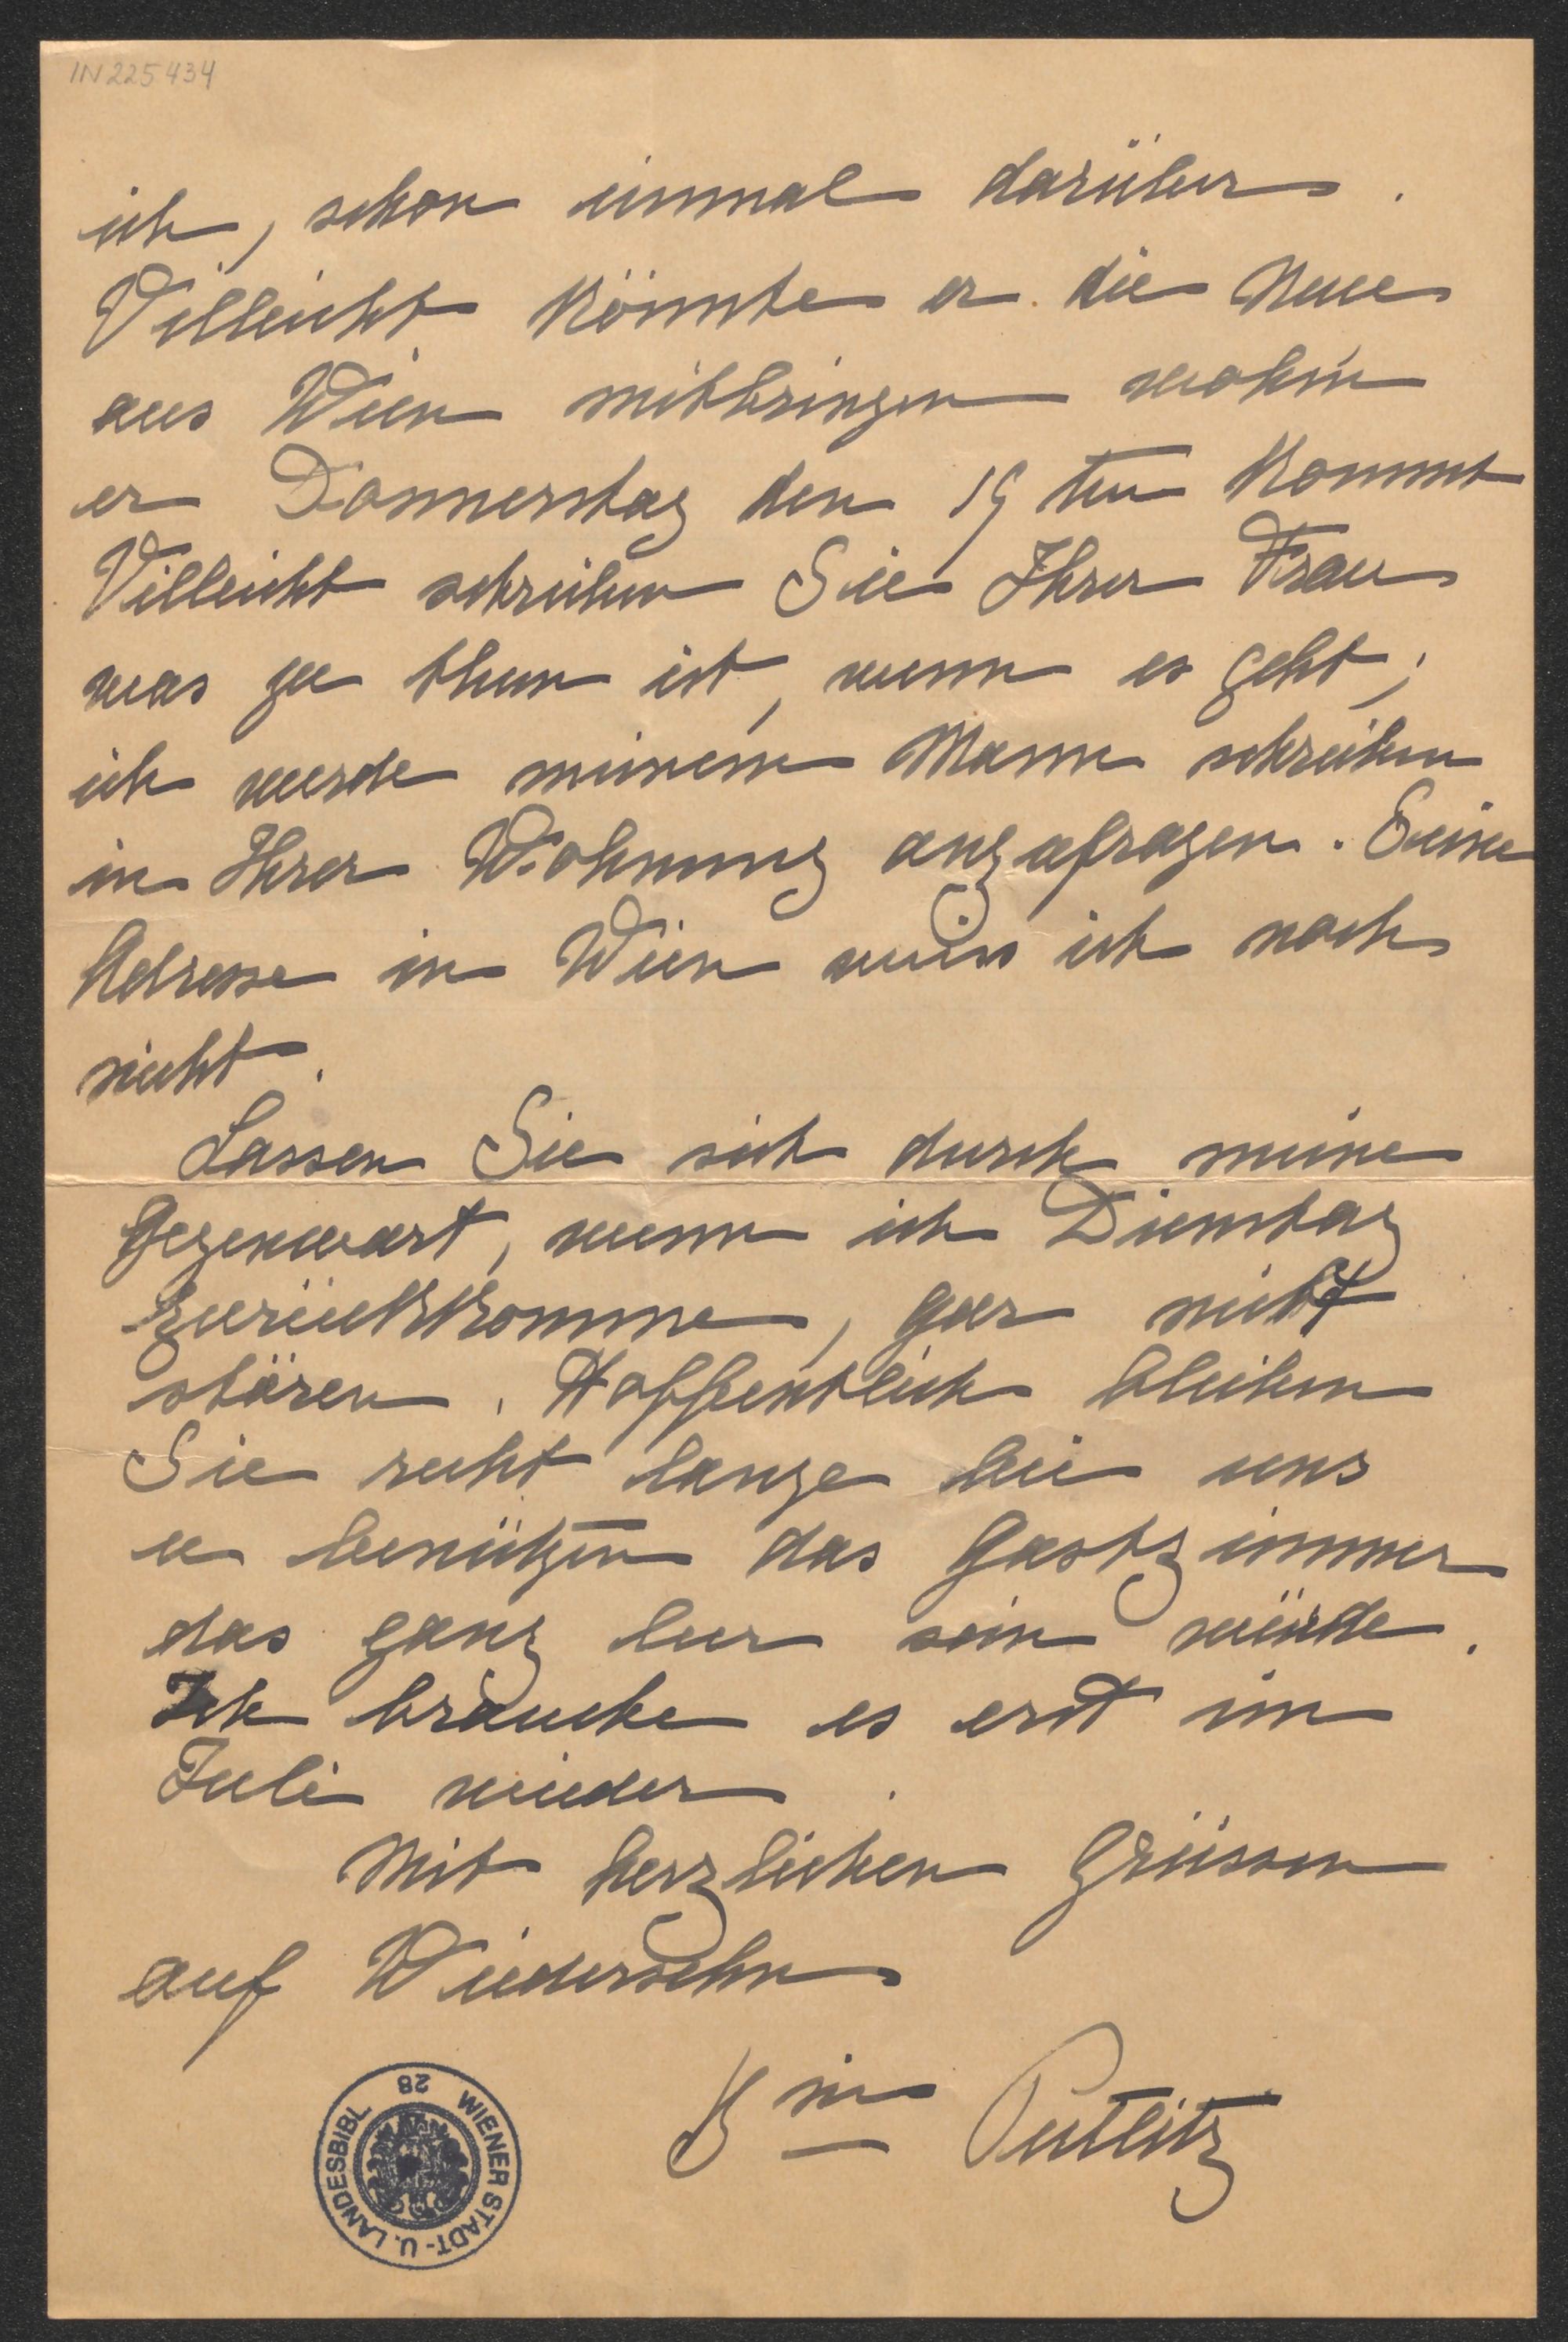 IN 225434
ich, schon einmal darüber.
Villeicht könnte er die Neue
aus Wien mitbringen wohin
er Donnerstag den 19ten kommt
Villeicht schreiben Sie Ihrer Frau
was zu thun ist, wenn es geht;
ich werde meinem Mann schreiben
in Ihrer Wohnung anzufragen. Seine
Adresse in Wien weiss ich noch
nicht.
Lassen Sie sich durch meine
Gegenwart, wenn ich Dienstag
zurückkomme, gar nicht
stören. Hoffentlich bleiben
Sie recht lange bei uns
u benützen das Gastzimmer
das ganz leer sein würde.
Ich brauche es erst im
Juli wieder.
Mit herzlichen Grüssen
auf Wiedersehn
Bnin Putlitz
WIENER STADT- U. LANDESBIBL 28